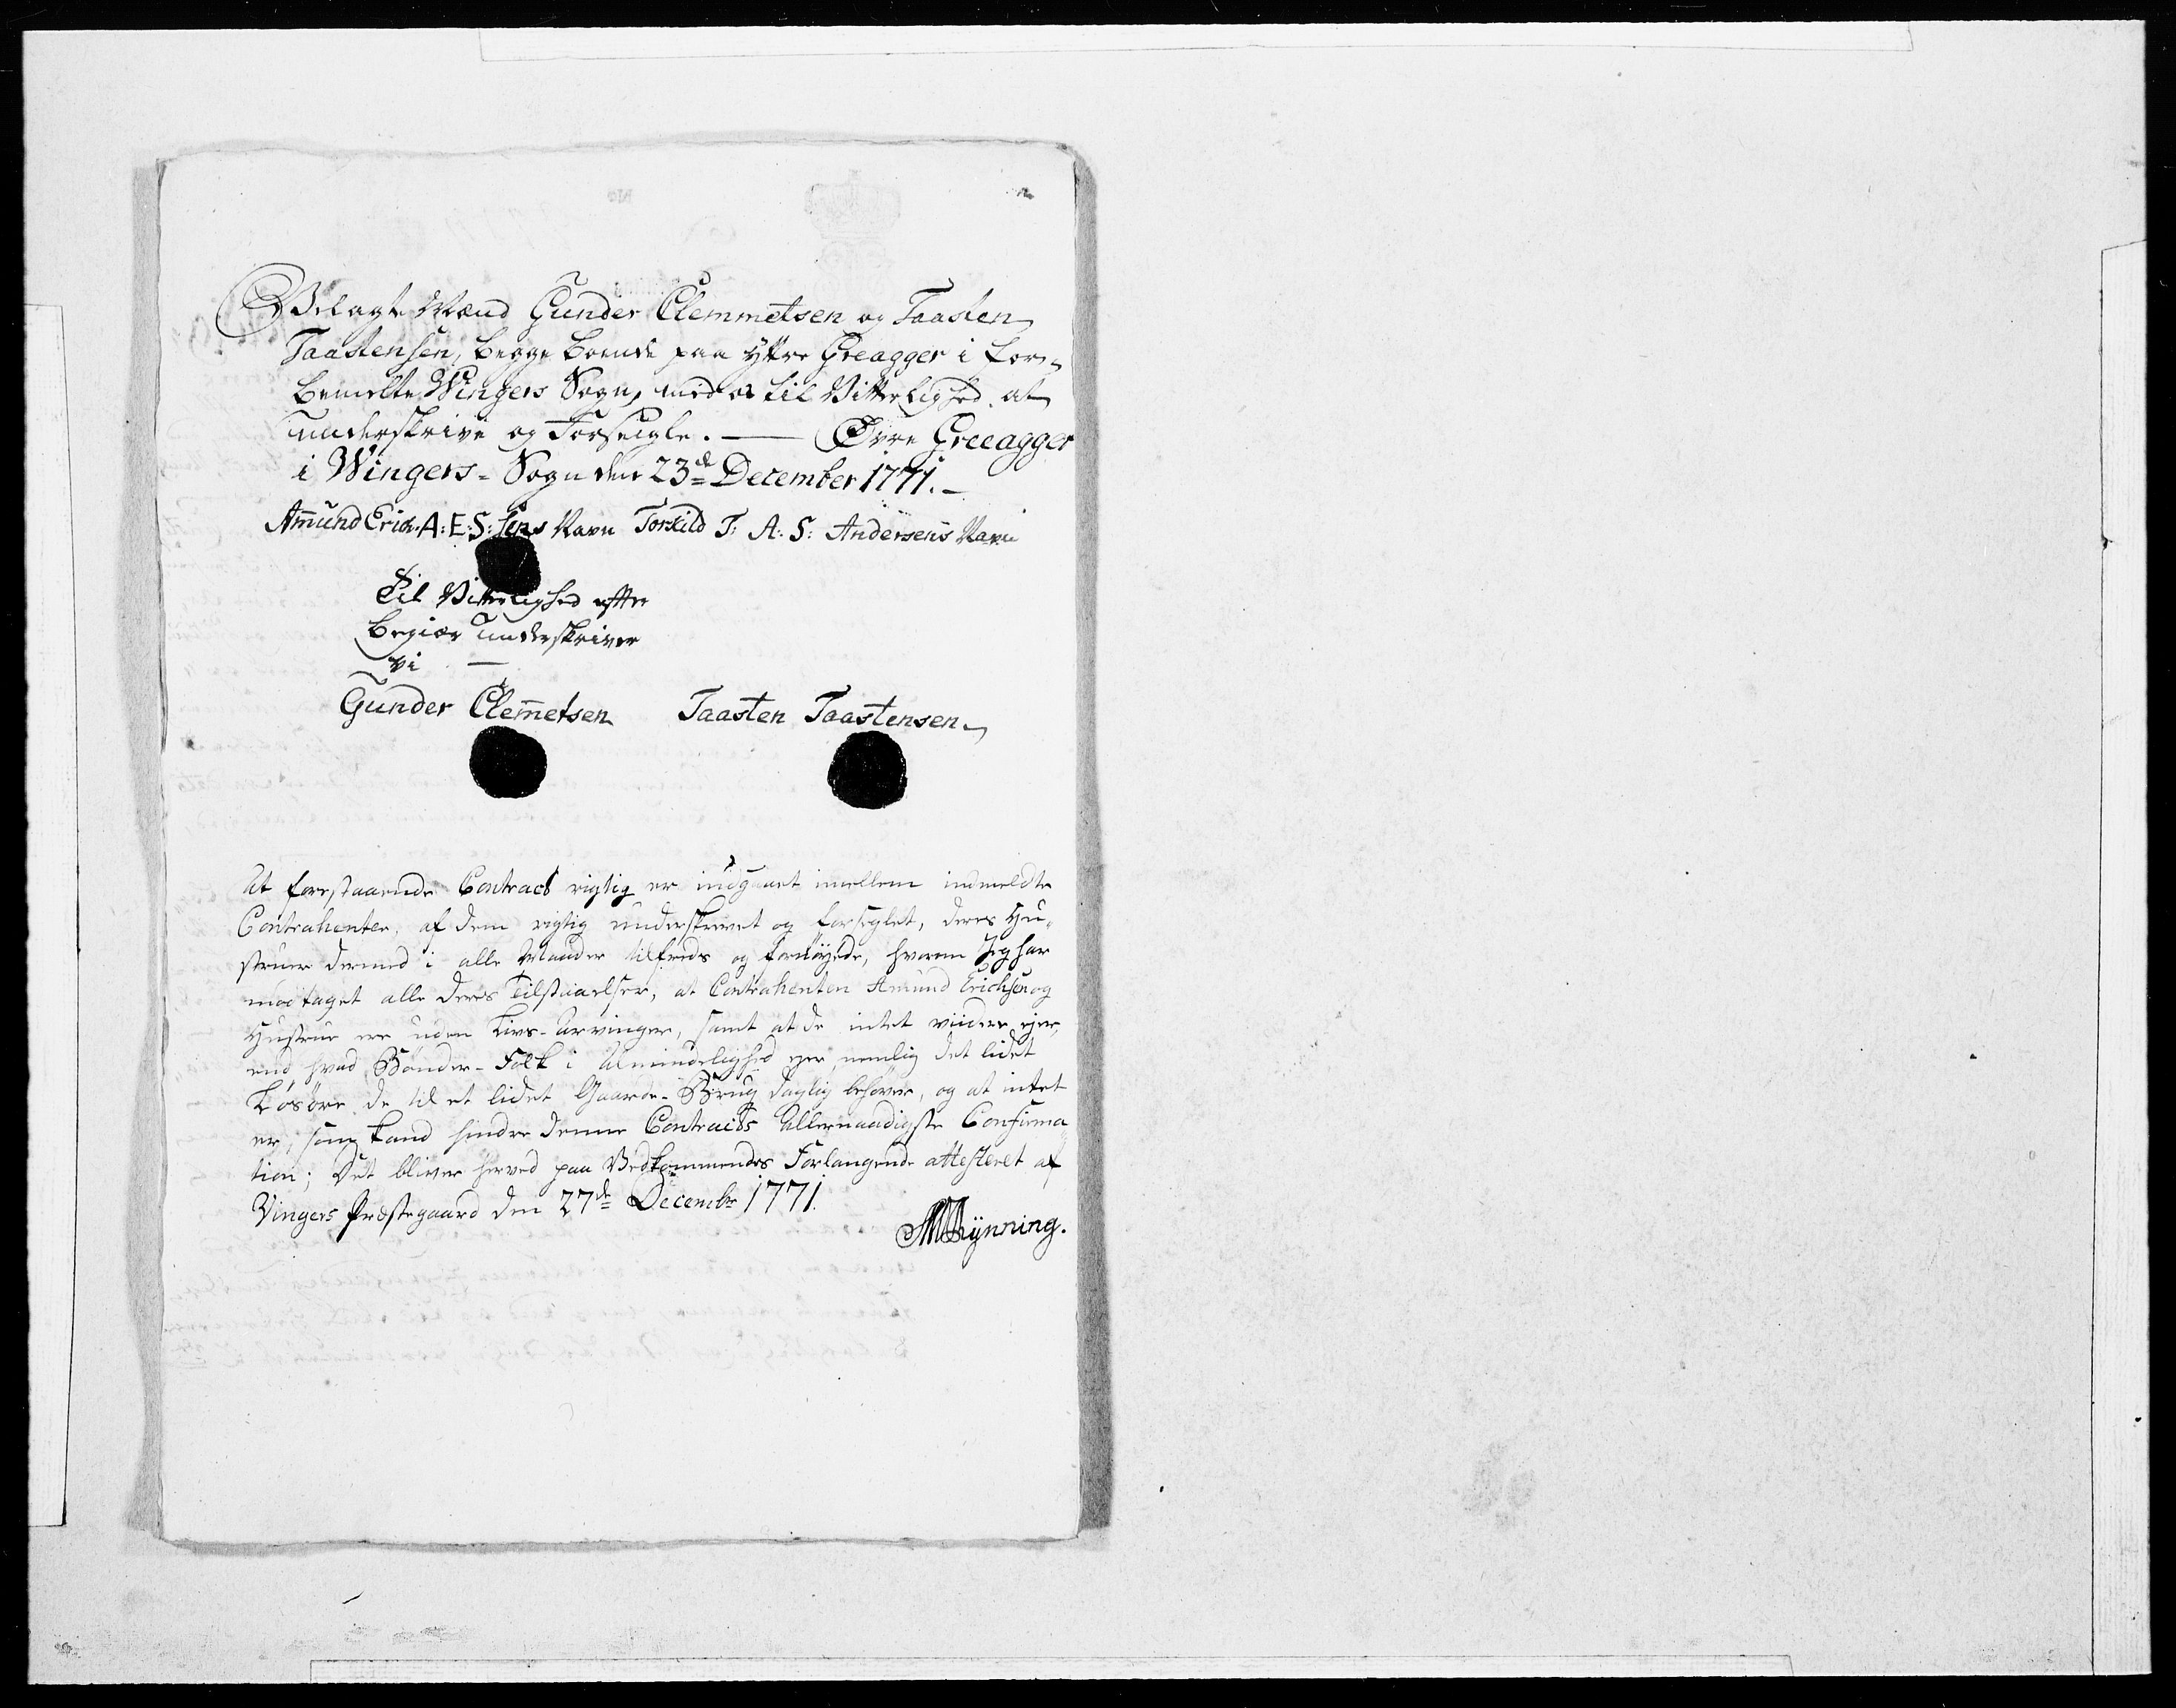 Velagte Mænd Gunder Clemmetsen og Taasten
Taastensen, begge boende paa Yttre Greagger i for-
bemelte Wingers Sogn, med os til Vitterlighed at
underskrive og Forseigle. — Øvre Greeagger
i Wingers-Sogn den 23de December 1771. —
Amund Erich. A: E: S: sens Navn Torkild T: A: S: Andersens Navn
Til Vitterlighed efter
begiær underskriver
vi —
Gunder Clem̄etsen Taasten Taastensen
At forestaaende Contract rigtig er indgaaet imellem indmeldte
Contrahenter, af dem rigtig underskrevet og forseglet, deres Hu-
struer dermed i alle Maader tilfreds og fornöyede, hvorom Jeg har
modtaget alle deres Tilstaaelser, at Contrahenten Amund Erichsen og
Hustrue ere uden Livs-Arvinger, samt at de intet viidere ejer,
end hvad Bönder-Folk i Almindelighed ejer, nemlig det lidet
Lösöre de til et lidet Gaards-Brug daglig behöver, og at intet
er, som kand hindre denne Contracts Allernaadigste Confirma
tion; Det bliver herved paa Vedkommendes Forlangende attesteret af
Vingers Præstegaard den 27de Decembr 1771.